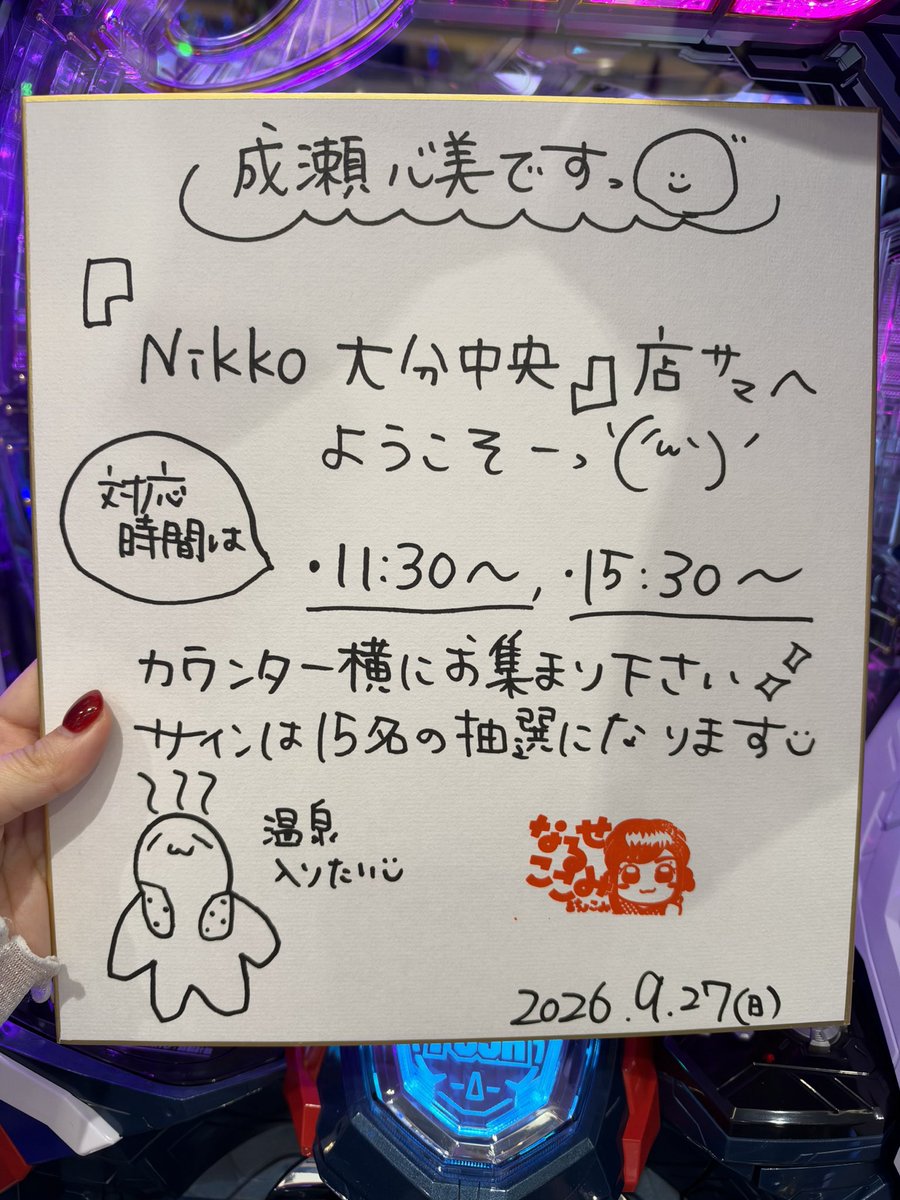 成瀬心美ですっ
『
Nikko 大分中央』店サマへ
ようこそーっ\('ω')/
対応
時間は
・11:30〜, ・15:30〜
カウンター横にお集まり下さい
サインは15名の抽選になります
温泉
入りたい
なるせ
ここみ
2026.9.27(日)